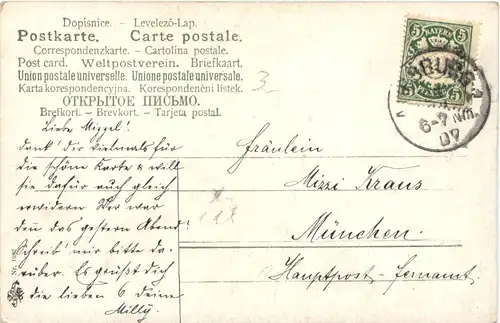 Dopisnice. - Levelező-Lap.
Postkarte. Carte postale.
Correspondenzkarte. - Cartolina postale.
Post card. - Weltpostverein. - Briefkaart.
Union postale universelle. Unione postale universale.
Karta korespondencyjna. Korespondenčni listek.
ОТКРЫТОЕ ПИСЬМО.
Brefkort. - Brevkort. - Tarjeta postal.
3
5 BAYERN 5
5 5
SBURG
6-7 Nm.
07
Liebe Mizzel!
Dank' dir vielmals für
die schöne Karte & will
sie dafür auch gleich
erwidern Wer war
denn das gestern Abend?
Schreib' mir bitte da-
rüber. Es grüßt dich
die lieben 6 Deine
Milly.
Fräulein
Mizzi Kraus
München.
Hauptpost-fernamt.